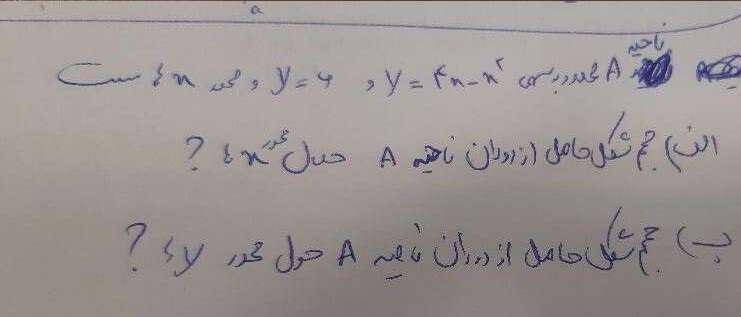 a
ناحیه A محدود به منحنی y = ۴x - x² و y = ۶ و محور x ها ست
الف) حجم شکل حاصل از دوران ناحیه A حول محور x ها ?
ب) حجم شکل حاصل از دوران ناحیه A حول محور y ها ?